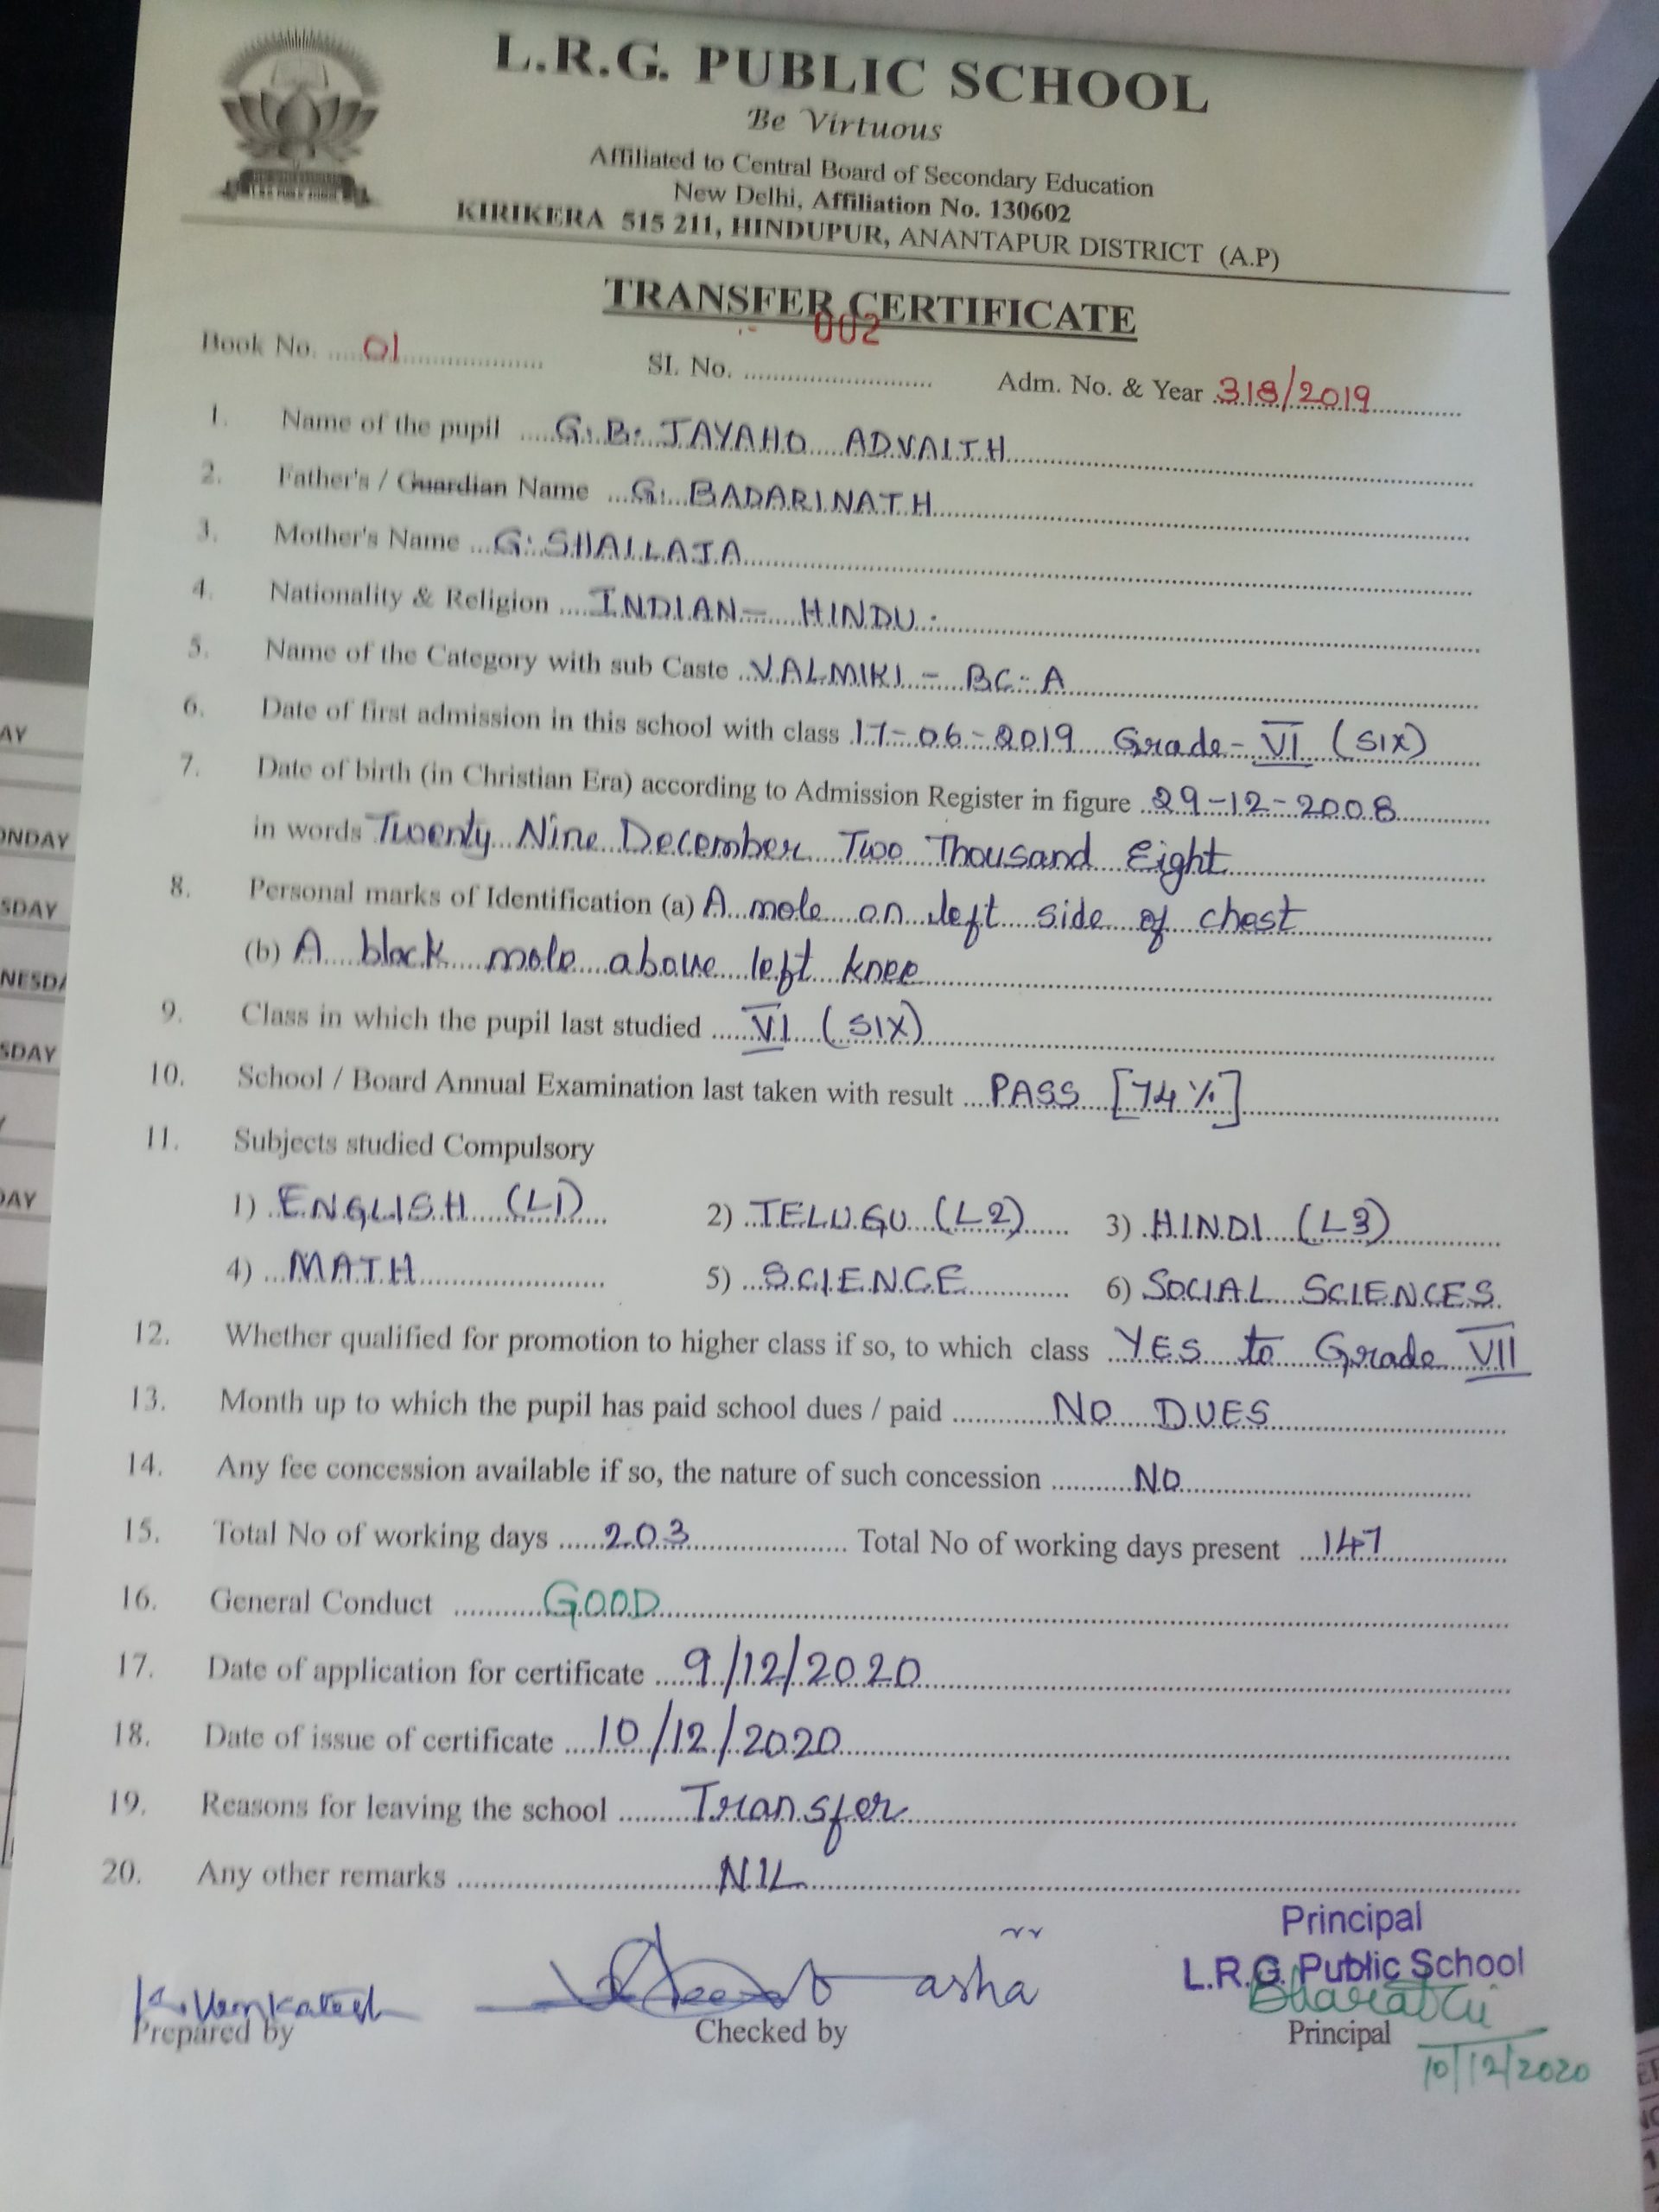 L.R.G. PUBLIC SCHOOL
Be Virtuous
Affiliated to Central Board of Secondary Education
New Delhi, Affiliation No. 130602
KIRIKERA 515 211, HINDUPUR, ANANTAPUR DISTRICT (A.P)
TRANSFER CERTIFICATE
Book No. 01 Sl. No. 002 Adm. No. & Year 318/2019
1. Name of the pupil G.B. JAYAHO ADVAITH
2. Father's / Guardian Name G. BADARINATH
3. Mother's Name G. SHAILAJA
4. Nationality & Religion INDIAN - HINDU.
5. Name of the Category with sub Caste VALMIKI - BC-A
6. Date of first admission in this school with class 17-06-2019 Grade-VI (SIX)
7. Date of birth (in Christian Era) according to Admission Register in figure 29-12-2008
in words Twenty Nine December Two Thousand Eight
8. Personal marks of Identification (a) A mole on left side of chest
(b) A black mole above left knee
9. Class in which the pupil last studied VI (SIX)
10. School / Board Annual Examination last taken with result PASS [74%]
11. Subjects studied Compulsory
1) ENGLISH (L1) 2) TELUGU (L2) 3) HINDI (L3)
4) MATH 5) SCIENCE 6) SOCIAL SCIENCES
12. Whether qualified for promotion to higher class if so, to which class YES to Grade VII
13. Month up to which the pupil has paid school dues / paid NO DUES
14. Any fee concession available if so, the nature of such concession NO
15. Total No of working days 203 Total No of working days present 147
16. General Conduct GOOD
17. Date of application for certificate 9/12/2020
18. Date of issue of certificate 10/12/2020
19. Reasons for leaving the school Transfer
20. Any other remarks NIL
Principal
L.R.G. Public School
K. Venkatesh asha Bharathi
Prepared by Checked by Principal
10/12/2020